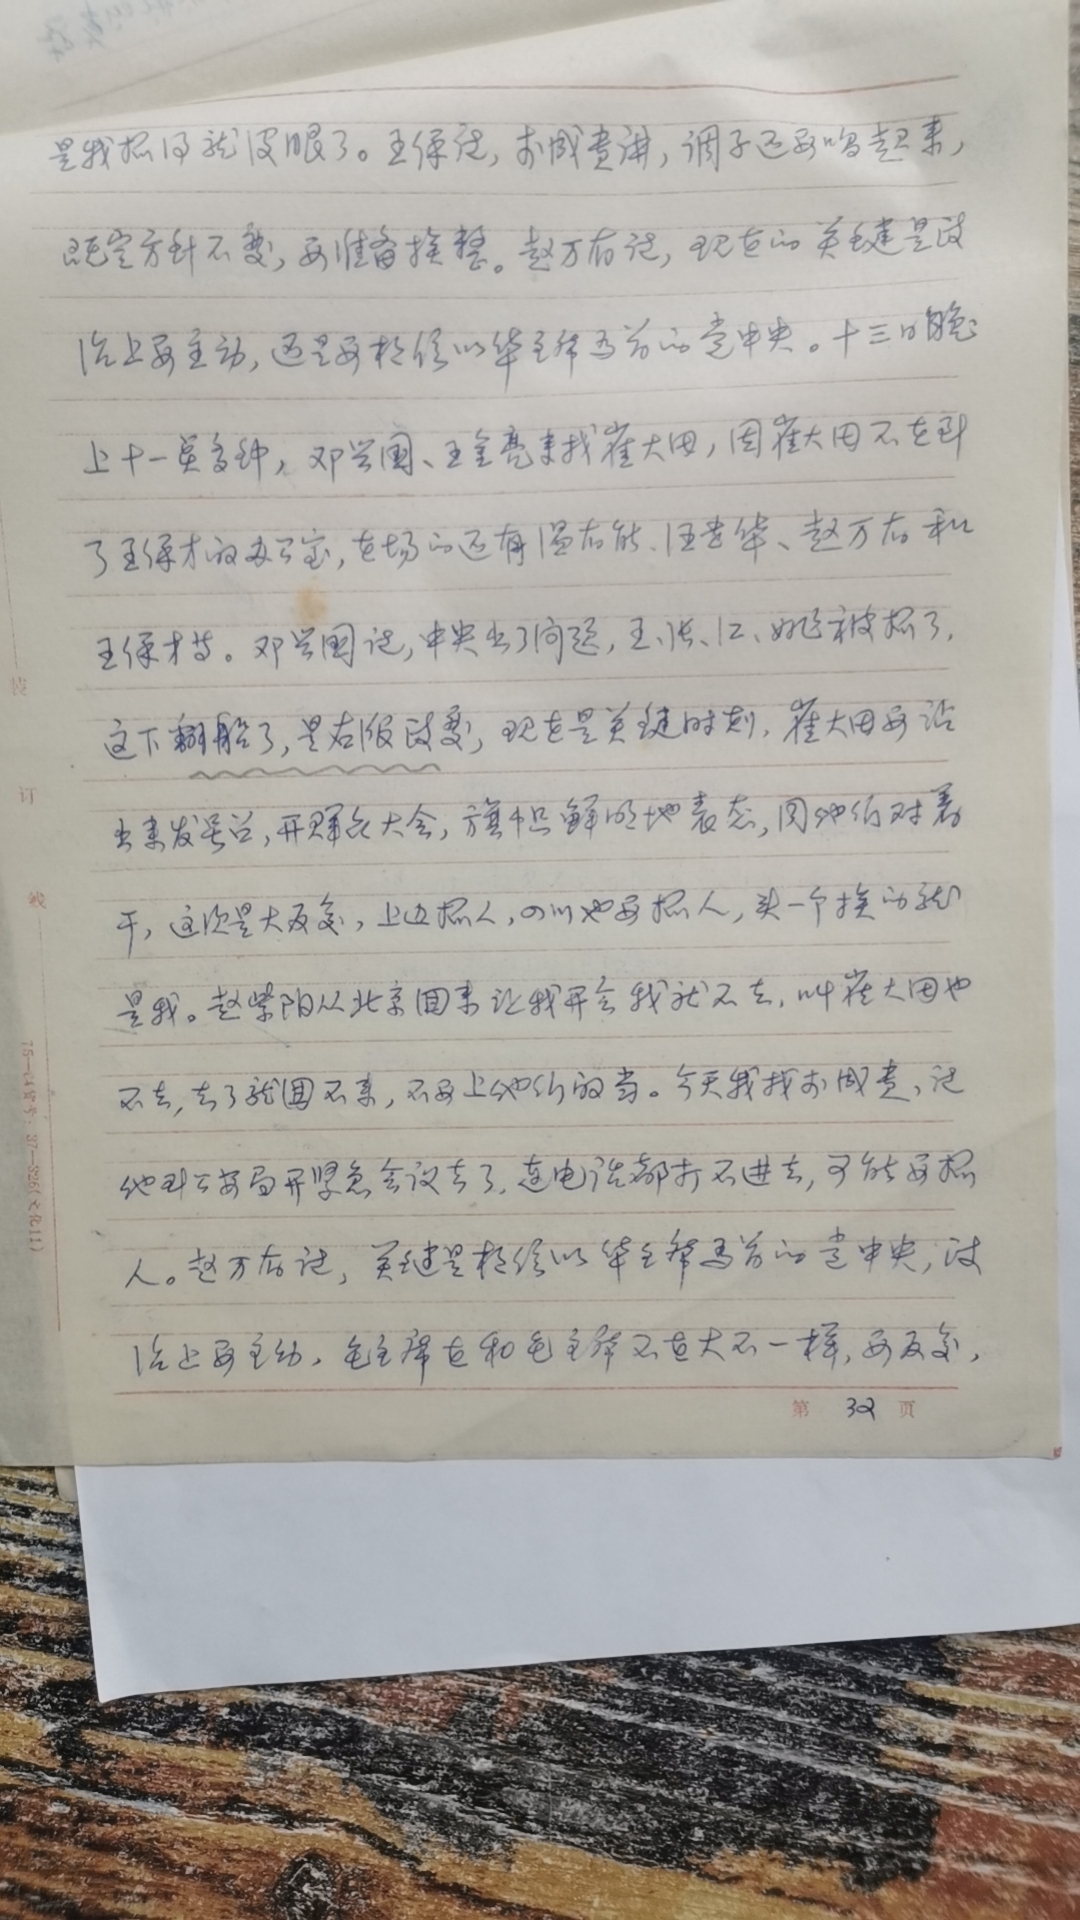 是我抓得就没眼了。王保说，李成贵讲，调子还要唱起来，
既定方针不变，要准备挨整。赵万有说，现在的关键是政
治上要主动，还是要相信以华主席为首的党中央。十三日晚
上十一点多钟，邓兴国、王金亮来找崔大田，因崔大田不在到
了王保才的办公室，在场的还有温有能、汪老华、赵万有和
王保才等。邓兴国说，中央出了问题，王、张、江、姚被抓了，
这下翻船了，是右派政变，现在是关键时刻，崔大田要站
出来发号召，开群众大会，旗帜鲜明地表态，同他们对着
干，这次是大反复，上边抓人，四川也要抓人，头一个挨的就
是我。赵紫阳从北京回来让我开会我就不去，叫崔大田也
不去，去了就回不来，不要上他们的当。今天我找李成贵，说
他到公安局开紧急会议去了，连电话都打不进去，可能要抓
人。赵万有说，关键是相信以华主席为首的党中央，政
治上要主动，毛主席在和毛主席不在大不一样，要反复，
第 32 页
装
订
线